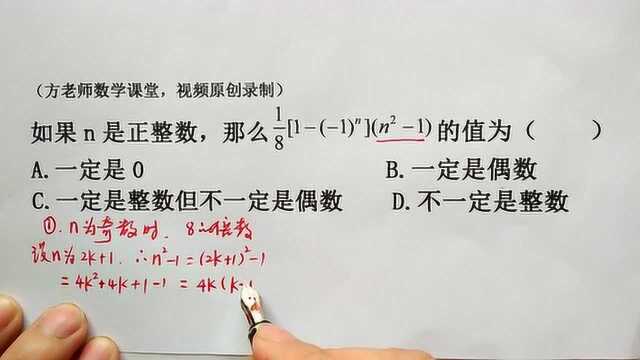 （方老师数学课堂，视频原创录制）
如果 n 是正整数，那么 1/8[1-(-1)ⁿ](n²-1) 的值为（　　）
A.一定是 0　　B.一定是偶数
C.一定是整数但不一定是偶数　　D.不一定是整数
①.n为奇数时，8的倍数
设n为2k+1，∴n²-1=(2k+1)²-1
=4k²+4k+1-1=4k(k